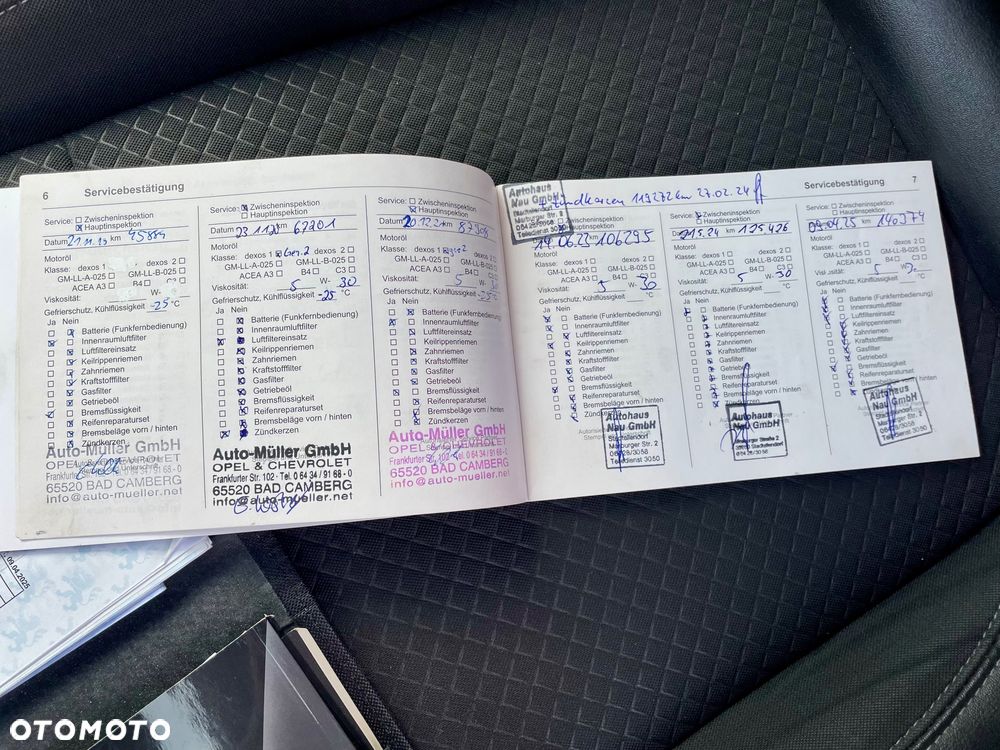 6 Servicebestätigung
Service: Zwischeninspektion
Hauptinspektion
Datum 21.11.19 km 45884
Motoröl
Klasse: dexos 1 dexos 2
GM-LL-A-025 GM-LL-B-025
ACEA A3 B4 C3
Viskosität: W-
Gefrierschutz, Kühlflüssigkeit -25 °C
Ja Nein
Batterie (Funkfernbedienung)
Innenraumluftfilter
Luftfiltereinsatz
Keilrippenriemen
Zahnriemen
Kraftstofffilter
Gasfilter
Getriebeöl
Bremsflüssigkeit
Reifenreparaturset
Bremsbeläge vorn / hinten
Zündkerzen
Auto-Müller GmbH
OPEL & CHEVROLET
Frankfurter Str. 102 · Tel. 0 64 34 / 91 68 - 0
65520 BAD CAMBERG
info@auto-mueller.net
Service: Zwischeninspektion
Hauptinspektion
Datum 23.11.20 km 67201
Motoröl
Klasse: dexos 1 Gen.2 dexos 2
GM-LL-A-025 GM-LL-B-025
ACEA A3 B4 C3
Viskosität: 5 W- 30
Gefrierschutz, Kühlflüssigkeit -25 °C
Ja Nein
Batterie (Funkfernbedienung)
Innenraumluftfilter
Luftfiltereinsatz
Keilrippenriemen
Zahnriemen
Kraftstofffilter
Gasfilter
Getriebeöl
Bremsflüssigkeit
Reifenreparaturset
Bremsbeläge vorn / hinten
Zündkerzen
Auto-Müller GmbH
OPEL & CHEVROLET
Frankfurter Str. 102 · Tel. 0 64 34 / 91 68 - 0
65520 BAD CAMBERG
info@auto-mueller.net
Service: Zwischeninspektion
Hauptinspektion
Datum 20.12.21 km
Motoröl
Klasse: dexos 1 dexos 2
GM-LL-A-025 GM-LL-B-025
ACEA A3 B4 C3
Viskosität: 5 W- 30
Gefrierschutz, Kühlflüssigkeit -25 °C
Ja Nein
Batterie (Funkfernbedienung)
Innenraumluftfilter
Luftfiltereinsatz
Keilrippenriemen
Zahnriemen
Kraftstofffilter
Gasfilter
Getriebeöl
Bremsflüssigkeit
Reifenreparaturset
Bremsbeläge vorn / hinten
Zündkerzen
Auto-Müller GmbH
OPEL & CHEVROLET
Frankfurter Str. 102 · Tel. 0 64 34 / 91 68 - 0
65520 BAD CAMBERG
info@auto-mueller.net
Servicebestätigung 7
Autohaus
Nau GmbH
Stadtallendorf
Marburger Str. 2
06428/3058
Teledienst 3050
Zündkerzen 113272 km 27.02.24
Zwischeninspektion
Hauptinspektion
14.06.23 106295
Motoröl
Klasse: dexos 1 dexos 2
GM-LL-A-025 GM-LL-B-025
ACEA A3 B4 C3
Viskosität: 5 W- 30
Gefrierschutz, Kühlflüssigkeit °C
Ja Nein
Batterie (Funkfernbedienung)
Innenraumluftfilter
Luftfiltereinsatz
Keilrippenriemen
Zahnriemen
Kraftstofffilter
Gasfilter
Getriebeöl
Bremsflüssigkeit
Reifenreparaturset
Bremsbeläge vorn / hinten
Zündkerzen
Autohaus
Nau GmbH
Stadtallendorf
Marburger Str. 2
06428/3058
Teledienst 3050
Service: Zwischeninspektion
Hauptinspektion
125426
Motoröl
Klasse: dexos 1 dexos 2
GM-LL-A-025 GM-LL-B-025
ACEA A3 B4 C3
Viskosität: 5 W- 30
Gefrierschutz, Kühlflüssigkeit °C
Ja Nein
Batterie (Funkfernbedienung)
Innenraumluftfilter
Luftfiltereinsatz
Keilrippenriemen
Zahnriemen
Kraftstofffilter
Gasfilter
Getriebeöl
Bremsflüssigkeit
Reifenreparaturset
Bremsbeläge vorn / hinten
Autohaus
Nau GmbH
Service: Zwischeninspektion
Hauptinspektion
09.04.25 km
Motoröl
Klasse: dexos 1 dexos 2
GM-LL-A-025 GM-LL-B-025
ACEA A3 B4 C3
Viskosität: 5 W-
Gefrierschutz, Kühlflüssigkeit °C
Ja Nein
Batterie (Funkfernbedienung)
Innenraumluftfilter
Luftfiltereinsatz
Keilrippenriemen
Zahnriemen
Kraftstofffilter
Gasfilter
Getriebeöl
Bremsflüssigkeit
Reifenreparaturset
Bremsbeläge vorn / hinten
Autohaus
Nau GmbH
Stadtallendorf
Marburger Str. 2
06428/3058
Teledienst 3050
09.04.2025
OTOMOTO